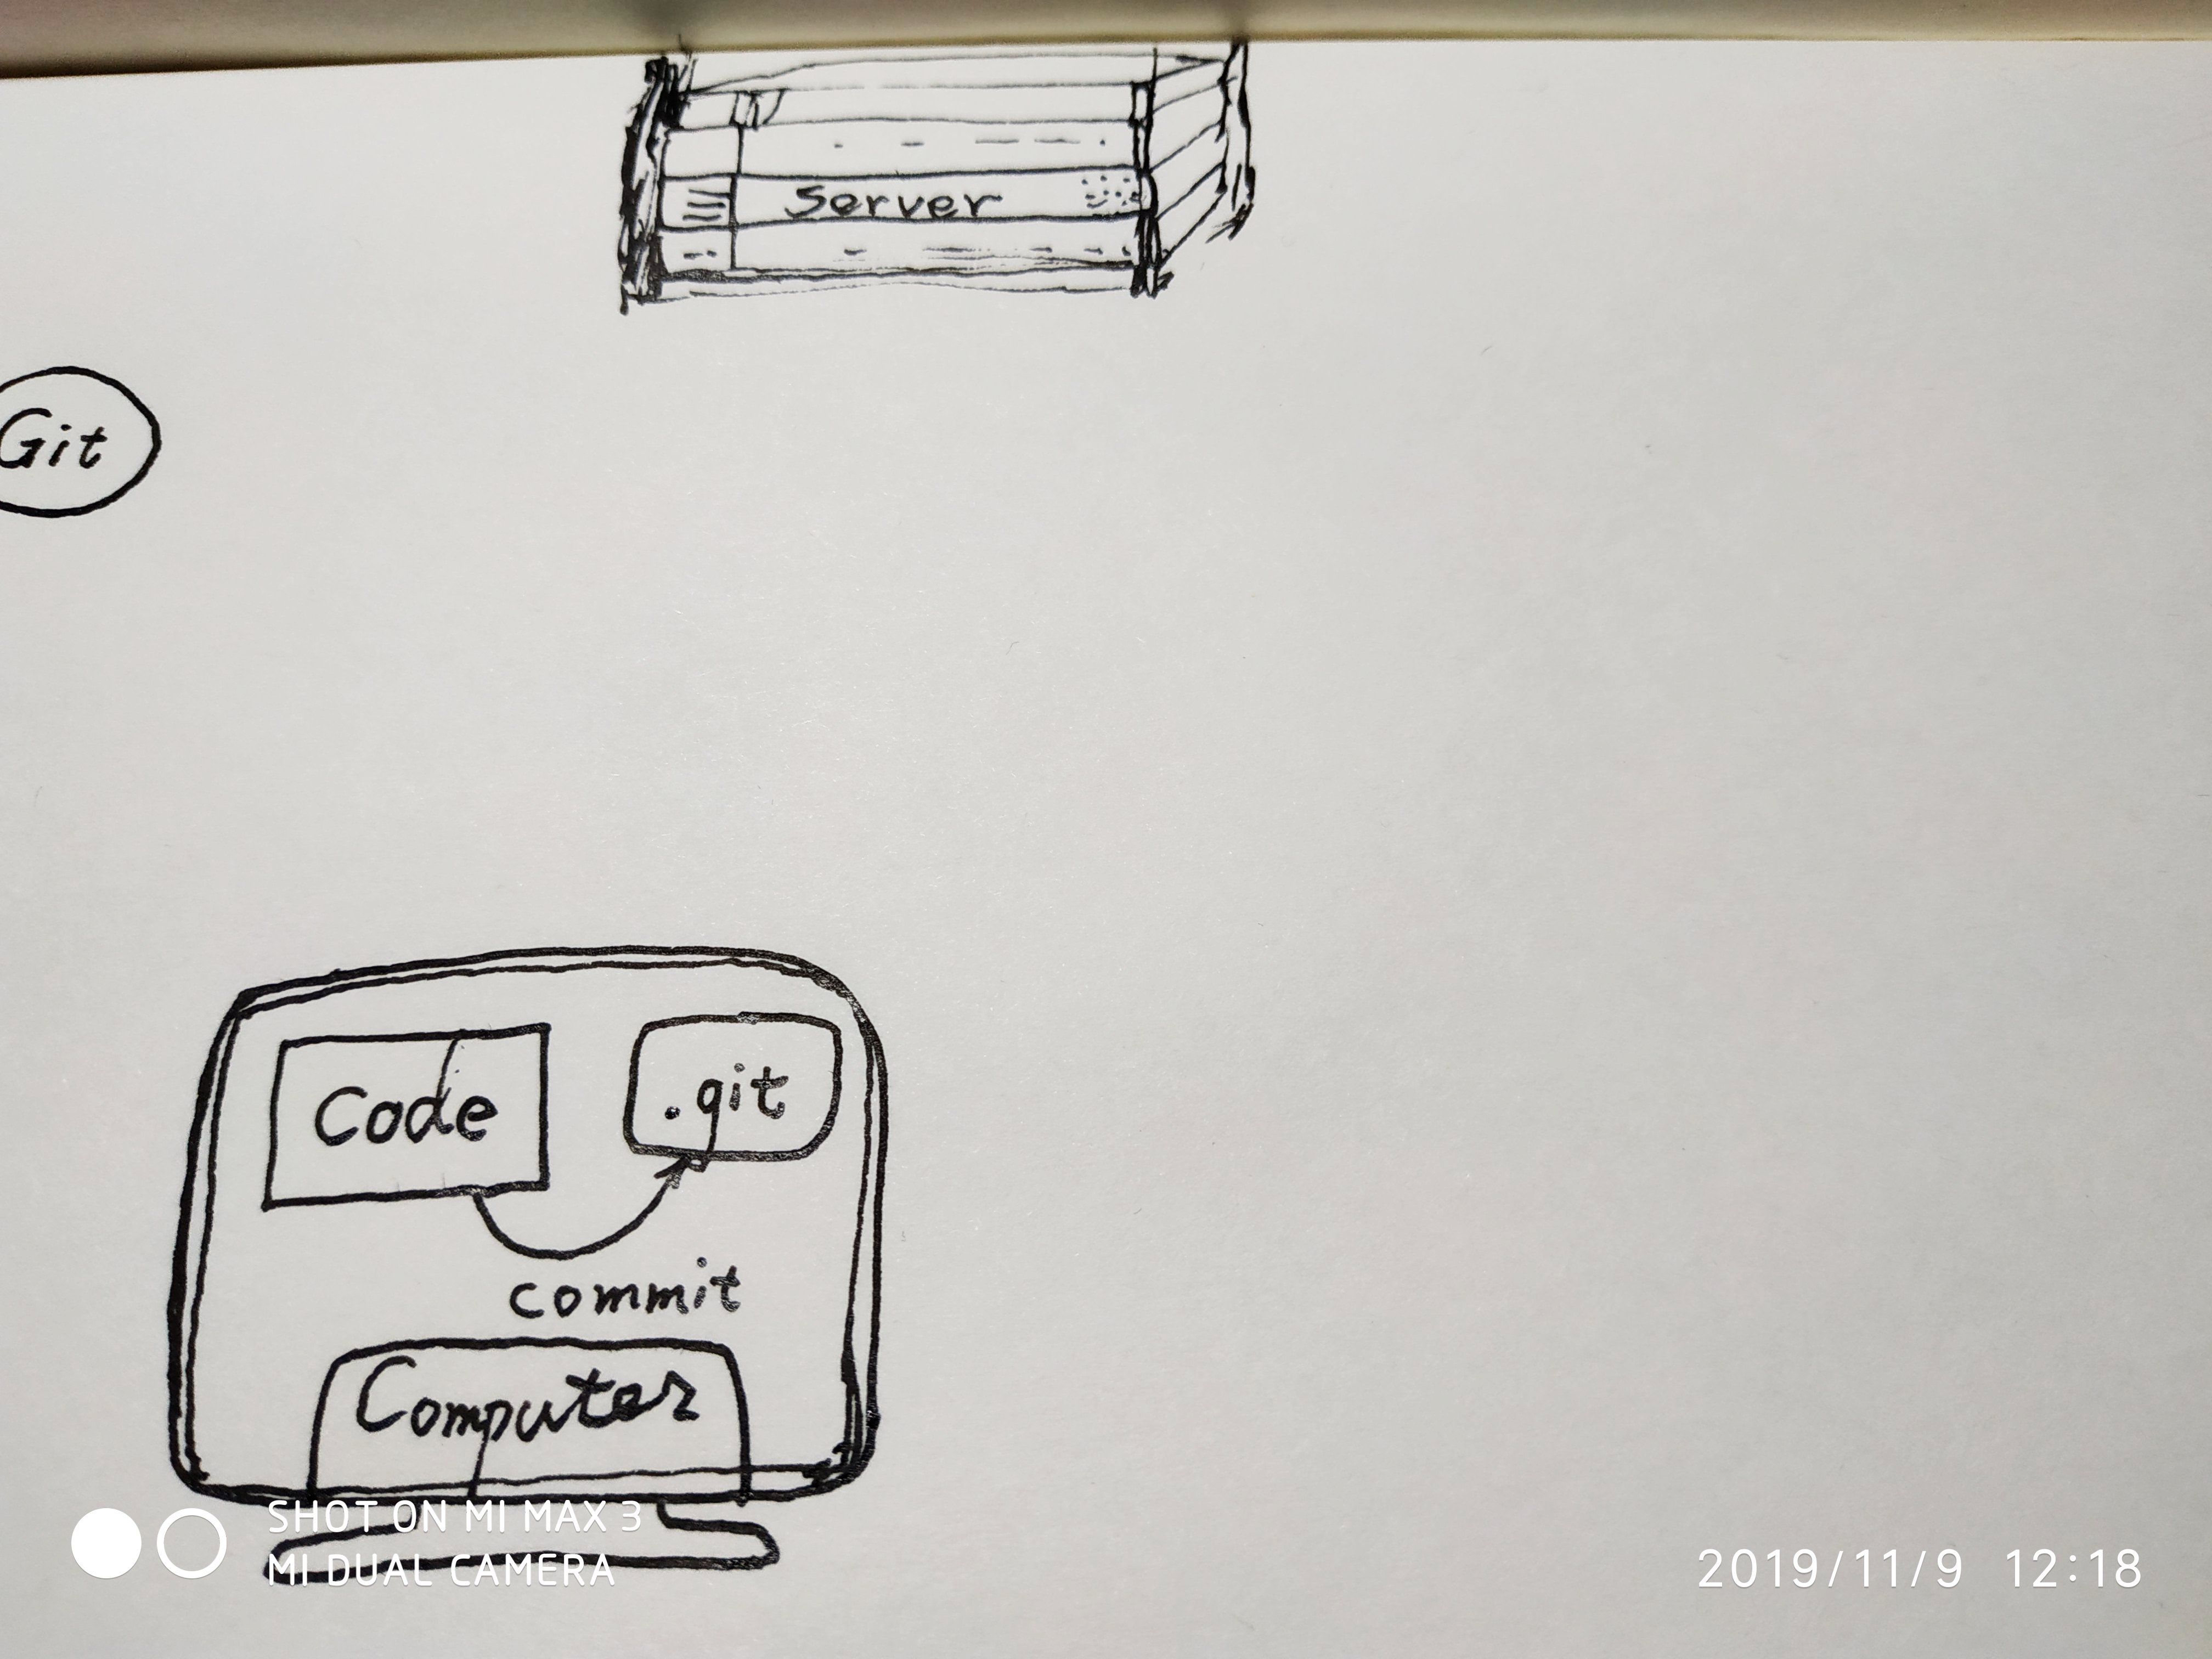 Server
Git
Code
.git
commit
Computer
SHOT ON MI MAX 3
MI DUAL CAMERA
2019/11/9 12:18